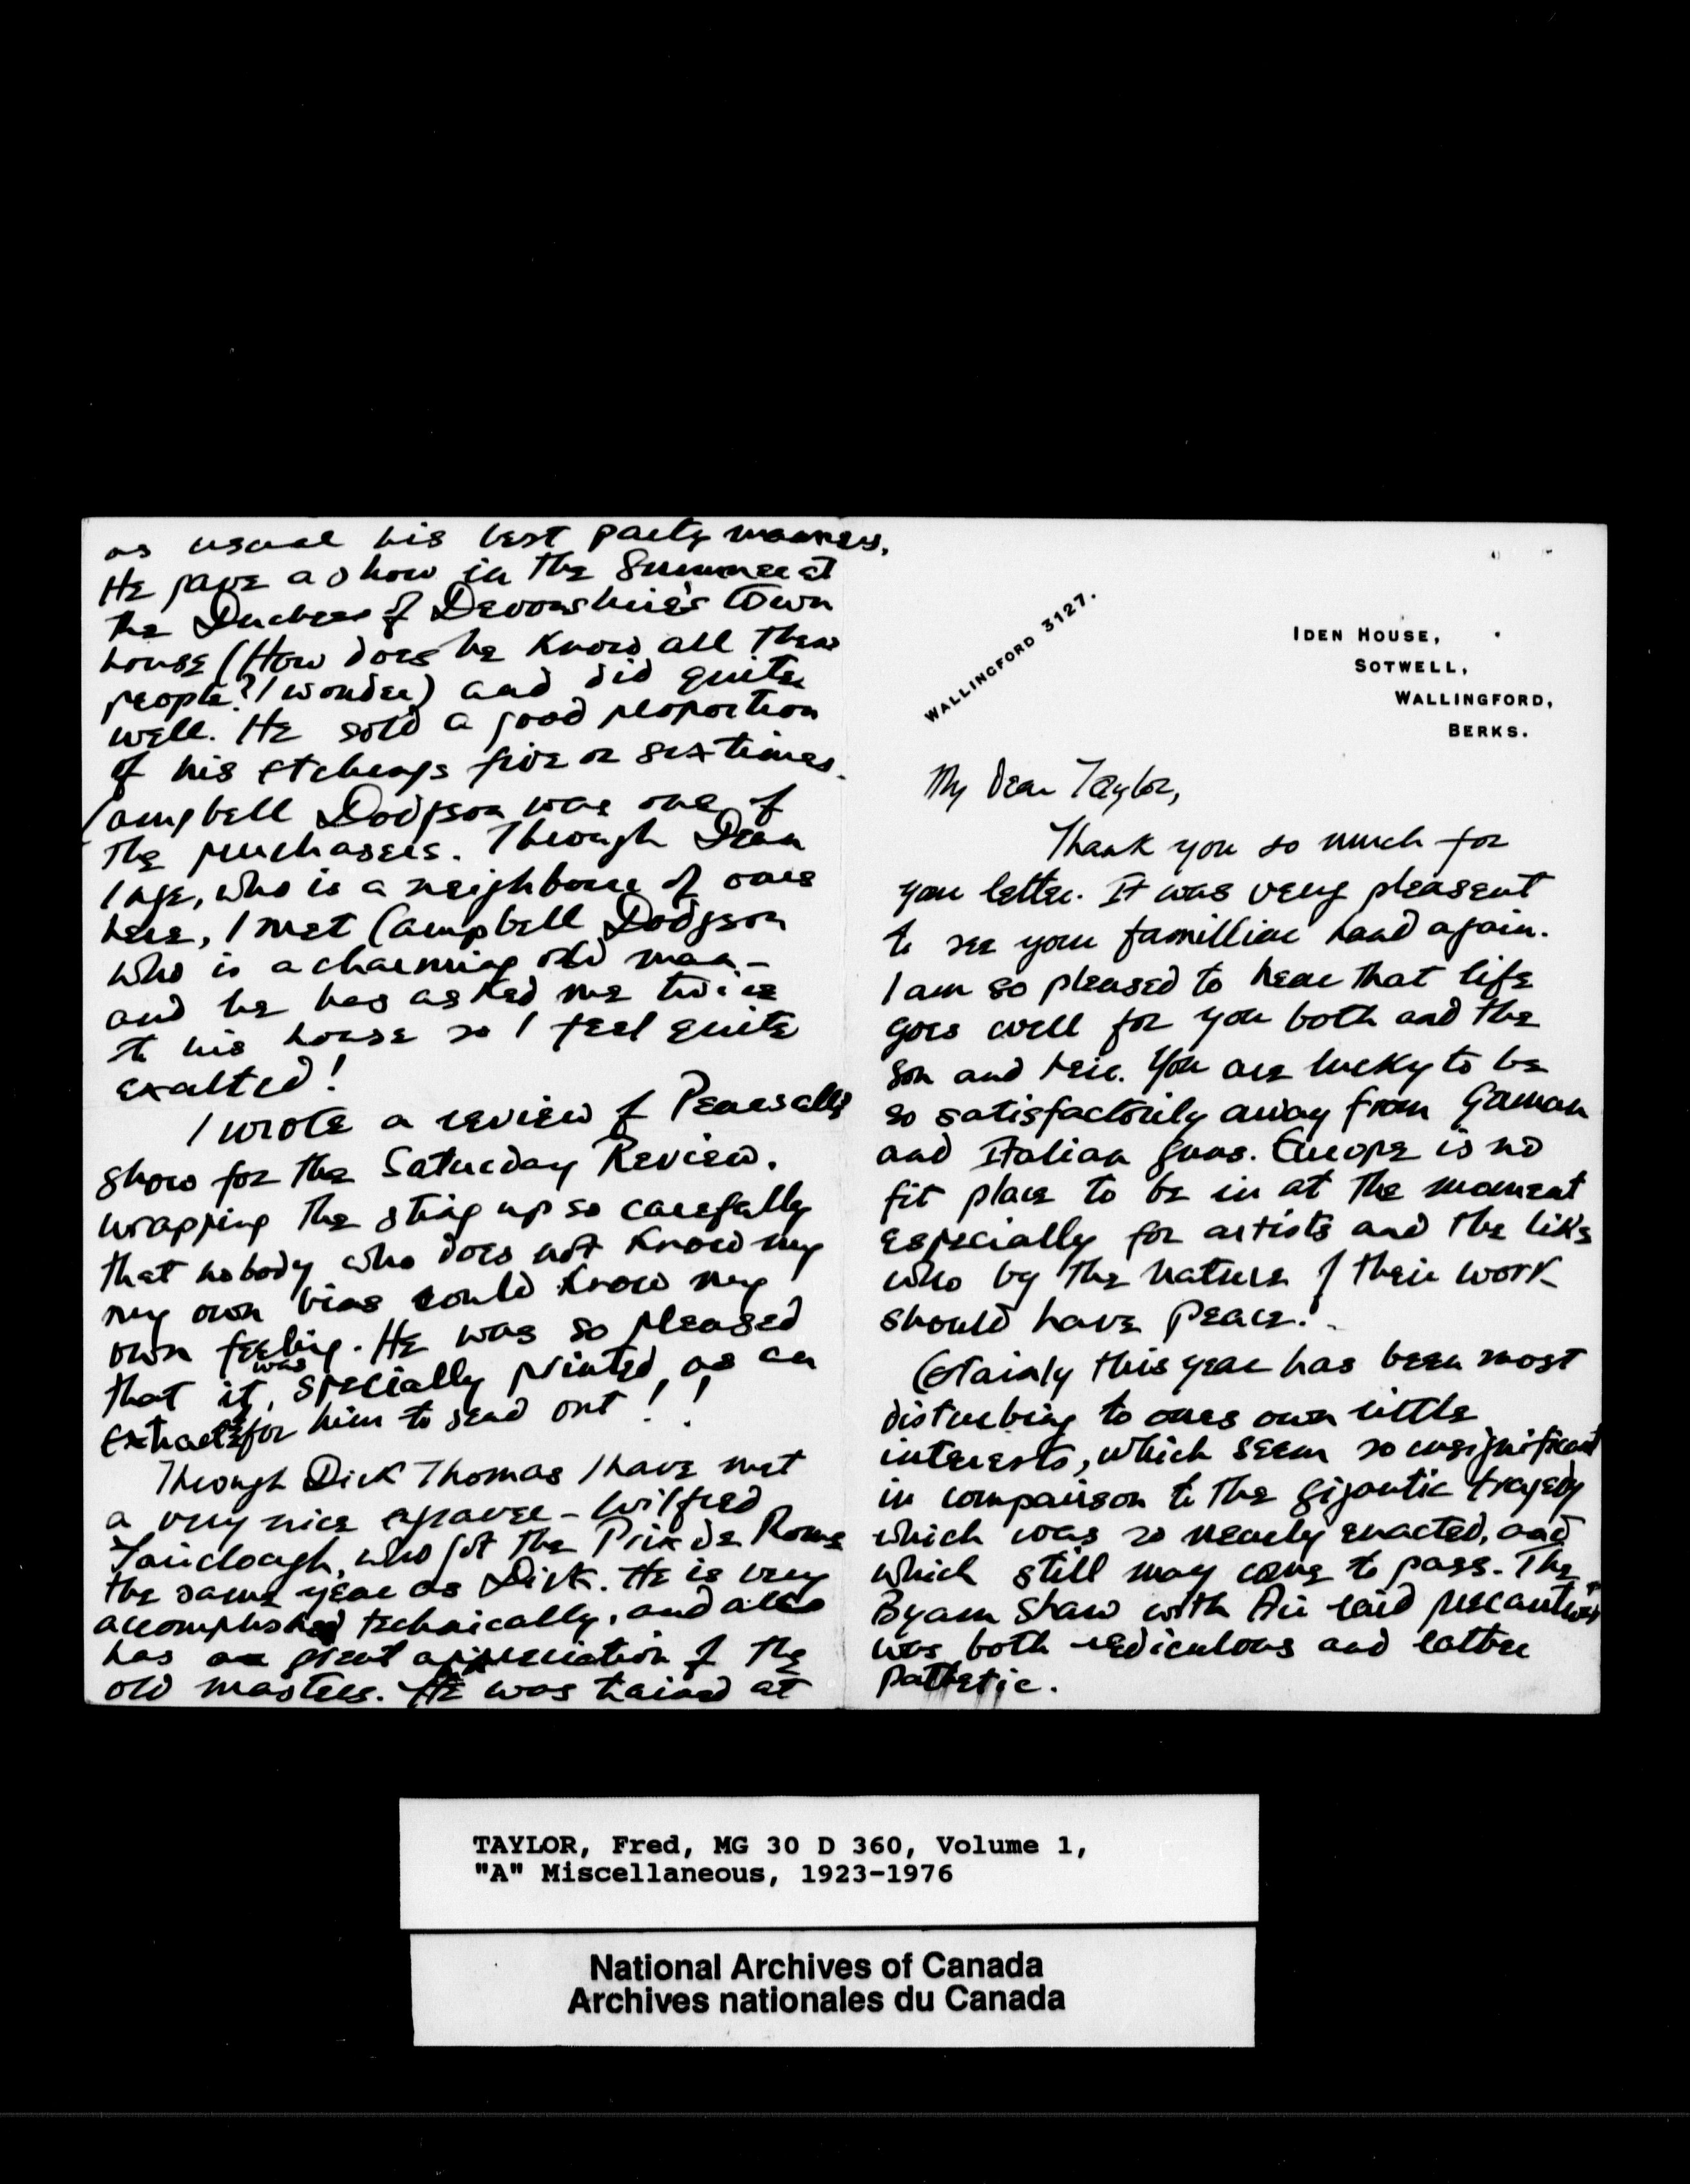 as usual his best party manners.
He gave a show in the Summer at
the Duchess of Devonshire's town
house (How does he know all these
people? I wonder) and did quite
well. He sold a good proportion
of his etchings five or six times.
Campbell Dodgson was one of
the purchasers. Through Dean
Inge, who is a neighbour of ours
here, I met Campbell Dodgson
who is a charming old man –
and he has asked me twice
to his house so I feel quite
exalted!
I wrote a review of Pearsalls
show for the Saturday Review.
wrapping the sting up so carefully
that nobody who does not know my
my own bias could know my
own feeling. He was so pleased
that it was specially printed as an
extract for him to send out!!
Through Dick Thomas I have met
a very nice egraver – Wilfred
Fairclough, who got the Prix de Rome
the same year as Dick. He is very
accomplished technically, and also
has great appreciation of the
old masters. He was trained at
WALLINGFORD 3127.
IDEN HOUSE,
SOTWELL,
WALLINGFORD,
BERKS.
My Dear Taylor,
Thank you so much for
your letter. It was very pleasent
to see your familliar hand again.
I am so pleased to hear that life
goes well for you both and the
son and heir. You are lucky to be
so satisfactorily away from German
and Italian guns. Europe is no
fit place to be in at the moment
especially for artists and the like
who by the nature of their work
should have peace!
Certainly this year has been most
disturbing to ones own little
interests, which seem so insignificant
in comparison to the gigantic tragedy
which was so nearly enacted, and
which still may come to pass. The
Byam Shaw with Air raid precautions
was both rediculous and rather
pathetic.
TAYLOR, Fred, MG 30 D 360, Volume 1,
"A" Miscellaneous, 1923-1976
National Archives of Canada
Archives nationales du Canada